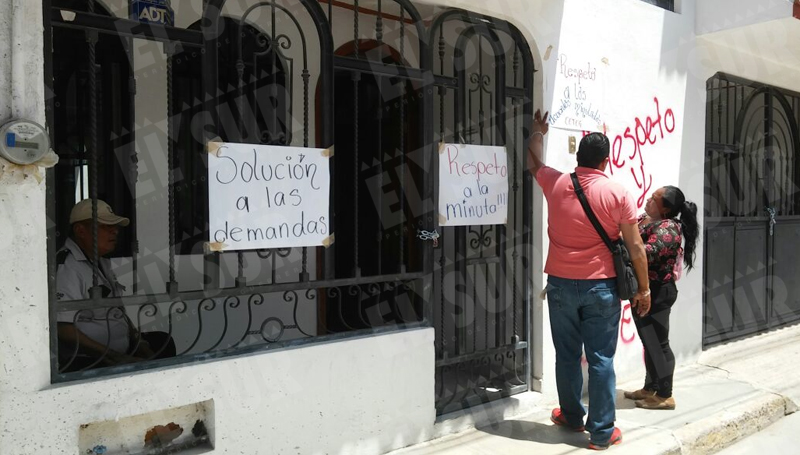 ADT
Solución
a las
demandas.
Respeto
a la
minuta!!!
Respeto
a los
Respeto
y
EL SUR